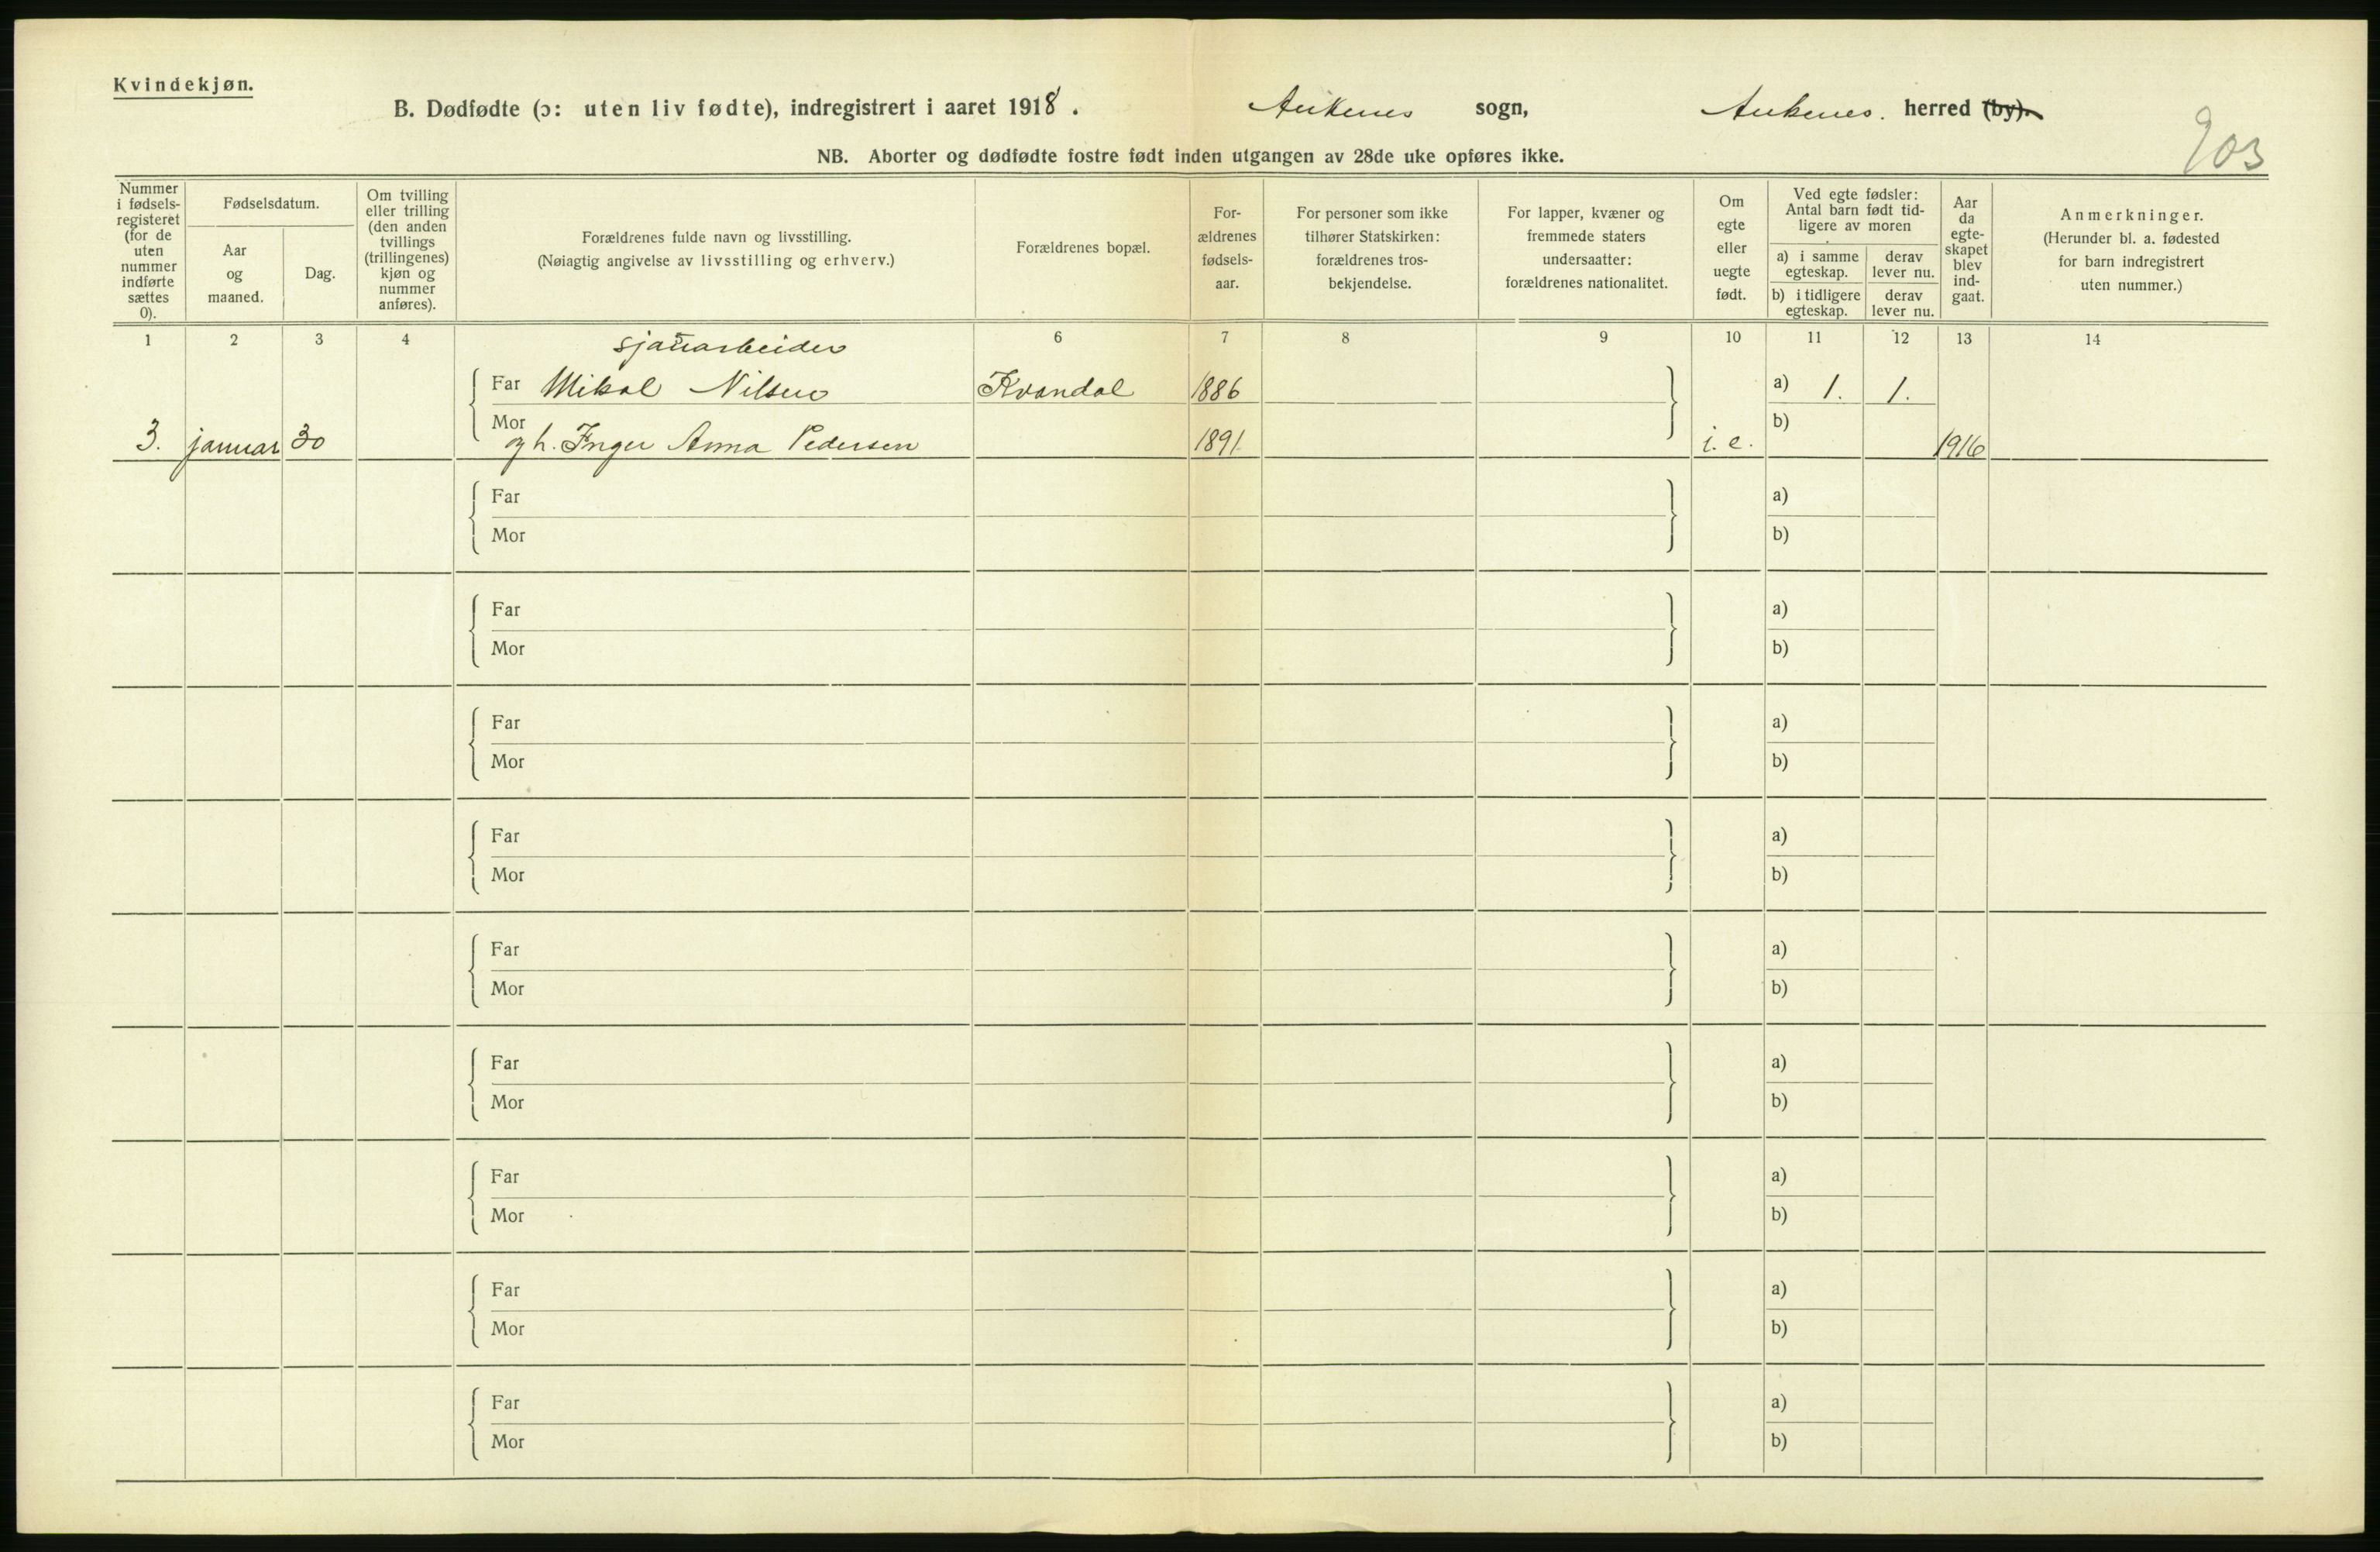 Kvindekjøn.
B. Dødfødte (ɔ: uten liv fødte), indregistrert i aaret 1918. Ankenes sogn, Ankenes. herred (by).
903
NB. Aborter og dødfødte fostre født inden utgangen av 28de uke opføres ikke.
Nummer i fødsels-registeret (for de uten nummer indførte sættes 0).
Fødselsdatum.
Aar og maaned.
Dag.
Om tvilling eller trilling (den anden tvillings (trillingenes) kjøn og nummer anføres).
Forældrenes fulde navn og livsstilling.
(Nøiagtig angivelse av livsstilling og erhverv.)
Forældrenes bopæl.
For-ældrenes fødsels-aar.
For personer som ikke tilhører Statskirken: forældrenes tros-bekjendelse.
For lapper, kvæner og fremmede staters undersaatter: forældrenes nationalitet.
Om egte eller uegte født.
Ved egte fødsler: Antal barn født tid-ligere av moren
a) i samme egteskap.
derav lever nu.
b) i tidligere egteskap.
derav lever nu.
Aar da egte-skapet blev ind-gaat.
Anmerkninger.
(Herunder bl. a. fødested for barn indregistrert uten nummer.)
1 2 3 4 6 7 8 9 10 11 12 13 14
sjauarbeider
Far Mikal Nilsen Kvandal 1886 a) 1. 1.
3. januar 30 Mor og h. Inger Anna Pedersen 1891. i. e. b) 1916
Far a)
Mor b)
Far a)
Mor b)
Far a)
Mor b)
Far a)
Mor b)
Far a)
Mor b)
Far a)
Mor b)
Far a)
Mor b)
Far a)
Mor b)
Far a)
Mor b)